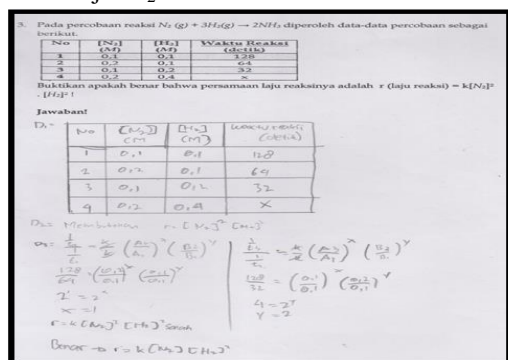 3. Pada percobaan reaksi N₂ (g) + 3H₂(g) → 2NH₃ diperoleh data-data percobaan sebagai
berikut.
No [N₂] (M) [H₂] (M) Waktu Reaksi (detik)
1 0,1 0,1 128
2 0,2 0,1 64
3 0,1 0,2 32
4 0,2 0,4 x
Buktikan apakah benar bahwa persamaan laju reaksinya adalah r (laju reaksi) = k[N₂]²
. [H₂]² !
Jawaban!
D₁ =
No [N₂] (M [H₂] (M) waktu reaksi (detik)
1 0,1 0,1 128
2 0,2 0,1 64
3 0,1 0,2 32
4 0,2 0,4 x
D₂ = Membuktikan r = [N₂]² [H₂]²
128/64 = (0,2/0,1)ˣ (0,1/0,1)ʸ
2 = 2ˣ
x = 1
128/32 = (0,1/0,1)ˣ (0,2/0,1)ʸ
4 = 2ʸ
Y = 2
r = k [N₂]² [H₂]² Salah
Benar → r = k [N₂] [H₂]²